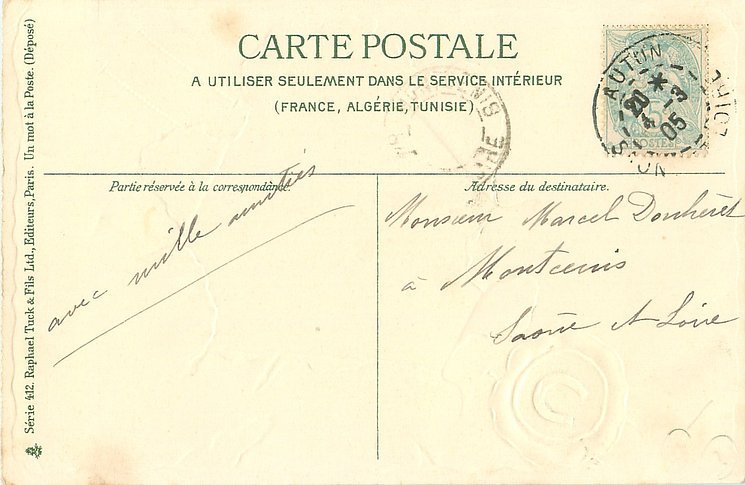 CARTE POSTALE
A UTILISER SEULEMENT DANS LE SERVICE INTÉRIEUR
(FRANCE, ALGÉRIE, TUNISIE)
Partie réservée à la correspondance.
Adresse du destinataire.
avec mille amitiés
Monsieur Marcel
à Montcenis
Saône et Loire
AUTUN
20 3-3 05
SAONE-ET-LOIRE
POSTES
Série 412. Raphael Tuck & Fils Ltd., Editeurs, Paris. Un mot à la Poste. (Déposé)